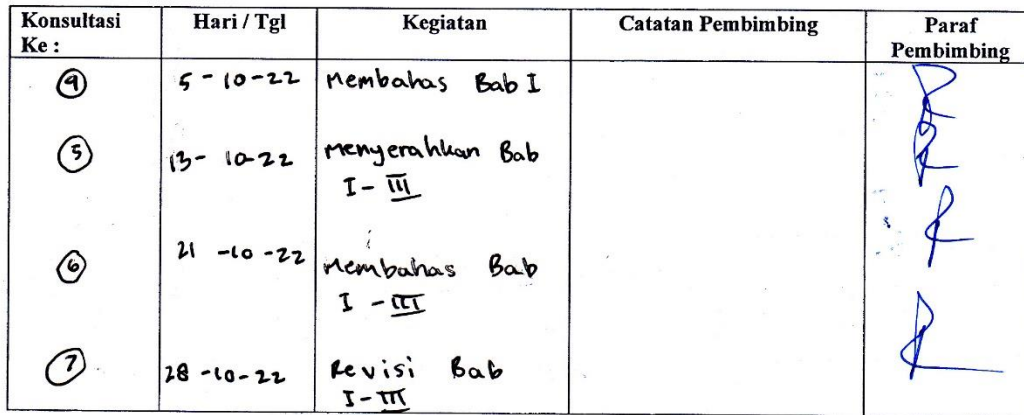 Konsultasi Ke : Hari / Tgl Kegiatan Catatan Pembimbing Paraf Pembimbing
4 5-10-22 Membahas Bab I
5 13-10-22 Menyerahkan Bab
I - III
6 21-10-22 Membahas Bab
I - III
7 28-10-22 Revisi Bab
I - III